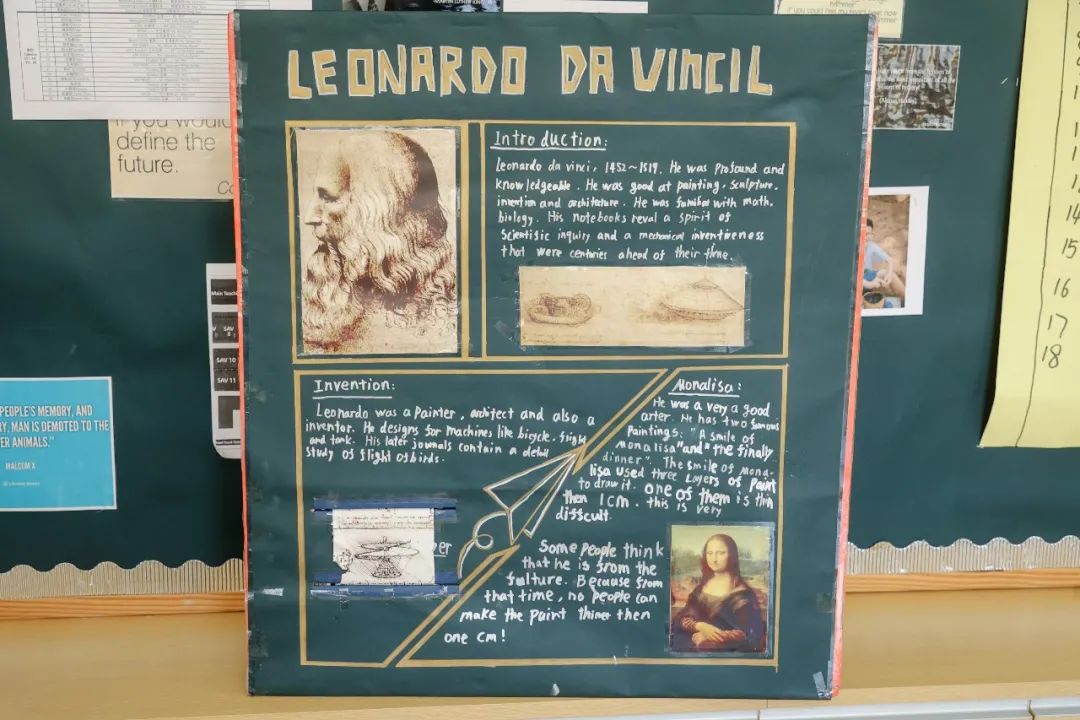 LEONARDO DA VINCIL
Introduction:
Leonardo da vinci, 1452~1519. He was Profound and
knowledgeable. He was good at painting, sculpture,
invention and architature. He was familar with math,
biology. His notebooks reval a spirit of
Scientific inquiry and a mechanical inventiveness
that were centuries ahead of their time.
Invention:
Leonardo was a Painter, architect and also a
inventor. He designs for machines like bicycle, flight
and tank. His later journals contain a detail
study of flight of birds.
Monalisa:
He was a very a good
arter. He has two famous
Paintings: "A smile of
mona lisa" and "the finally
dinner". The smile of mona-
lisa used three Layers of Paint
to draw it. one of them is thin
then 1cm. this is very
difficult.
Some People think
that he is from the
fulture. Because from
that time, no people can
make the paint thiner then
one cm!
define the
future.
Main
SAV 10
SAV 11
PEOPLE'S MEMORY, AND
MAN IS DEMOTED TO THE
ANIMALS."
MALCOM X
14
15
16
17
18